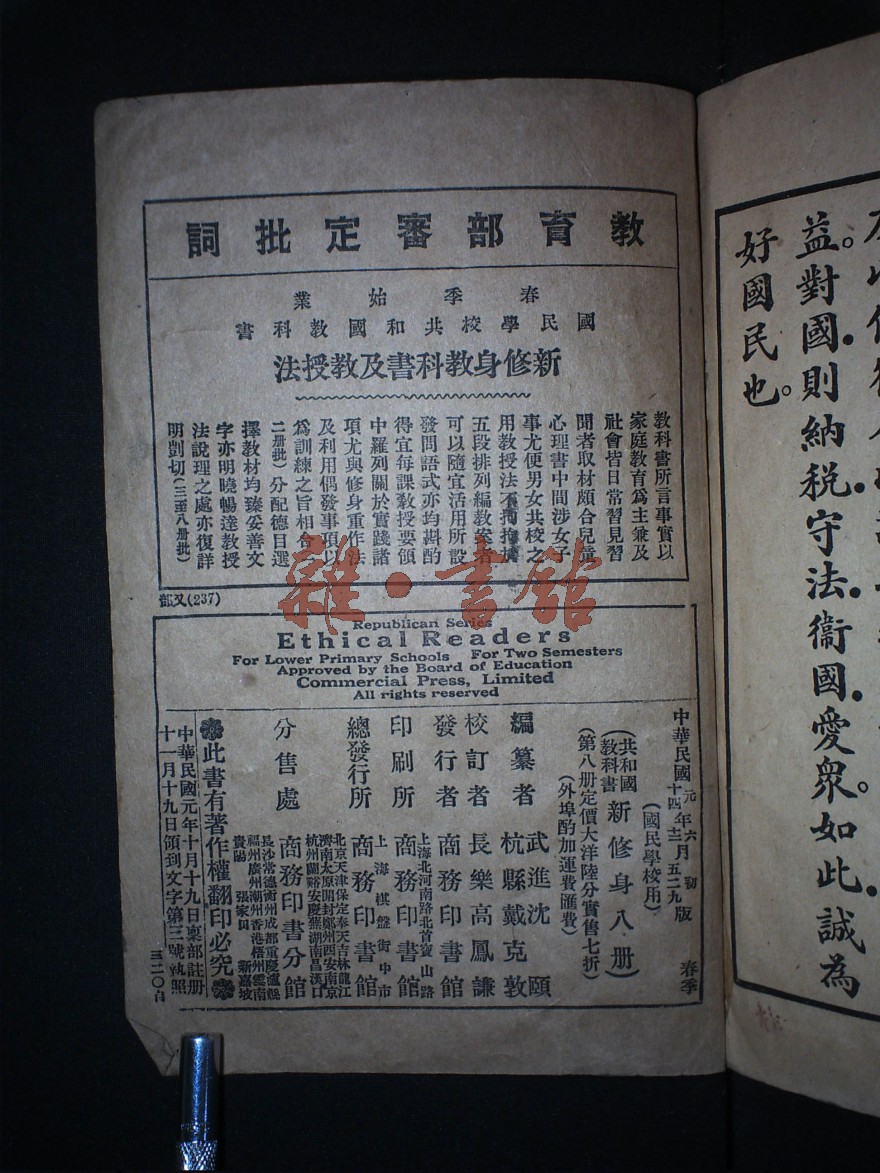 教育部審定批詞
春季始業
國民學校共和國教科書
新修身教科書及教授法
教科書所言事實以
家庭教育爲主兼及
社會皆日常習見習
聞者取材頗合兒童
心理書中間涉女子
事尤便男女共校之
用教授法不拘拘於
五段排列編教案者
可以隨宜活用所設
發問語式亦均斟酌
得宜每課教授要領
中羅列關於實踐諸
項尤與修身重作法
及利用偶發事項以
爲訓練之旨相合
二册批)分配德目選
擇教材均臻妥善文
字亦明曉暢達教授
法說理之處亦復詳
明剴切(三至八册批)
又部(237)
Republican Series
Ethical Readers
For Lower Primary Schools For Two Semesters
Approved by the Board of Education
Commercial Press, Limited
All rights reserved
中華民國元年六月初版
春季
(國民學校用)
(共和國教科書新修身八册)
(第八册定價大洋陸分實售七折)
(外埠酌加運費匯費)
編纂者 武進沈頤 杭縣戴克敦
校訂者 長樂高鳳謙
發行者 商務印書館
印刷所 上海北河南路北首寶山路 商務印書館
總發行所 上海棋盤街中市 商務印書館
分售處 商務印書分館
北京天津保定奉天吉林龍江
濟南太原開封鄭州西安南京
杭州蘭谿安慶蕪湖南昌漢口
長沙常德衡州成都重慶瀘縣
福州廣州潮州香港梧州雲南
貴陽 張家口 新嘉坡
此書有著作權翻印必究
中華民國元年十月十九日稟部註册
十一月十九日領到文字第三號執照
益。對國則納稅守法。衞國愛衆。如此誠為
好國民也。
雜·書館